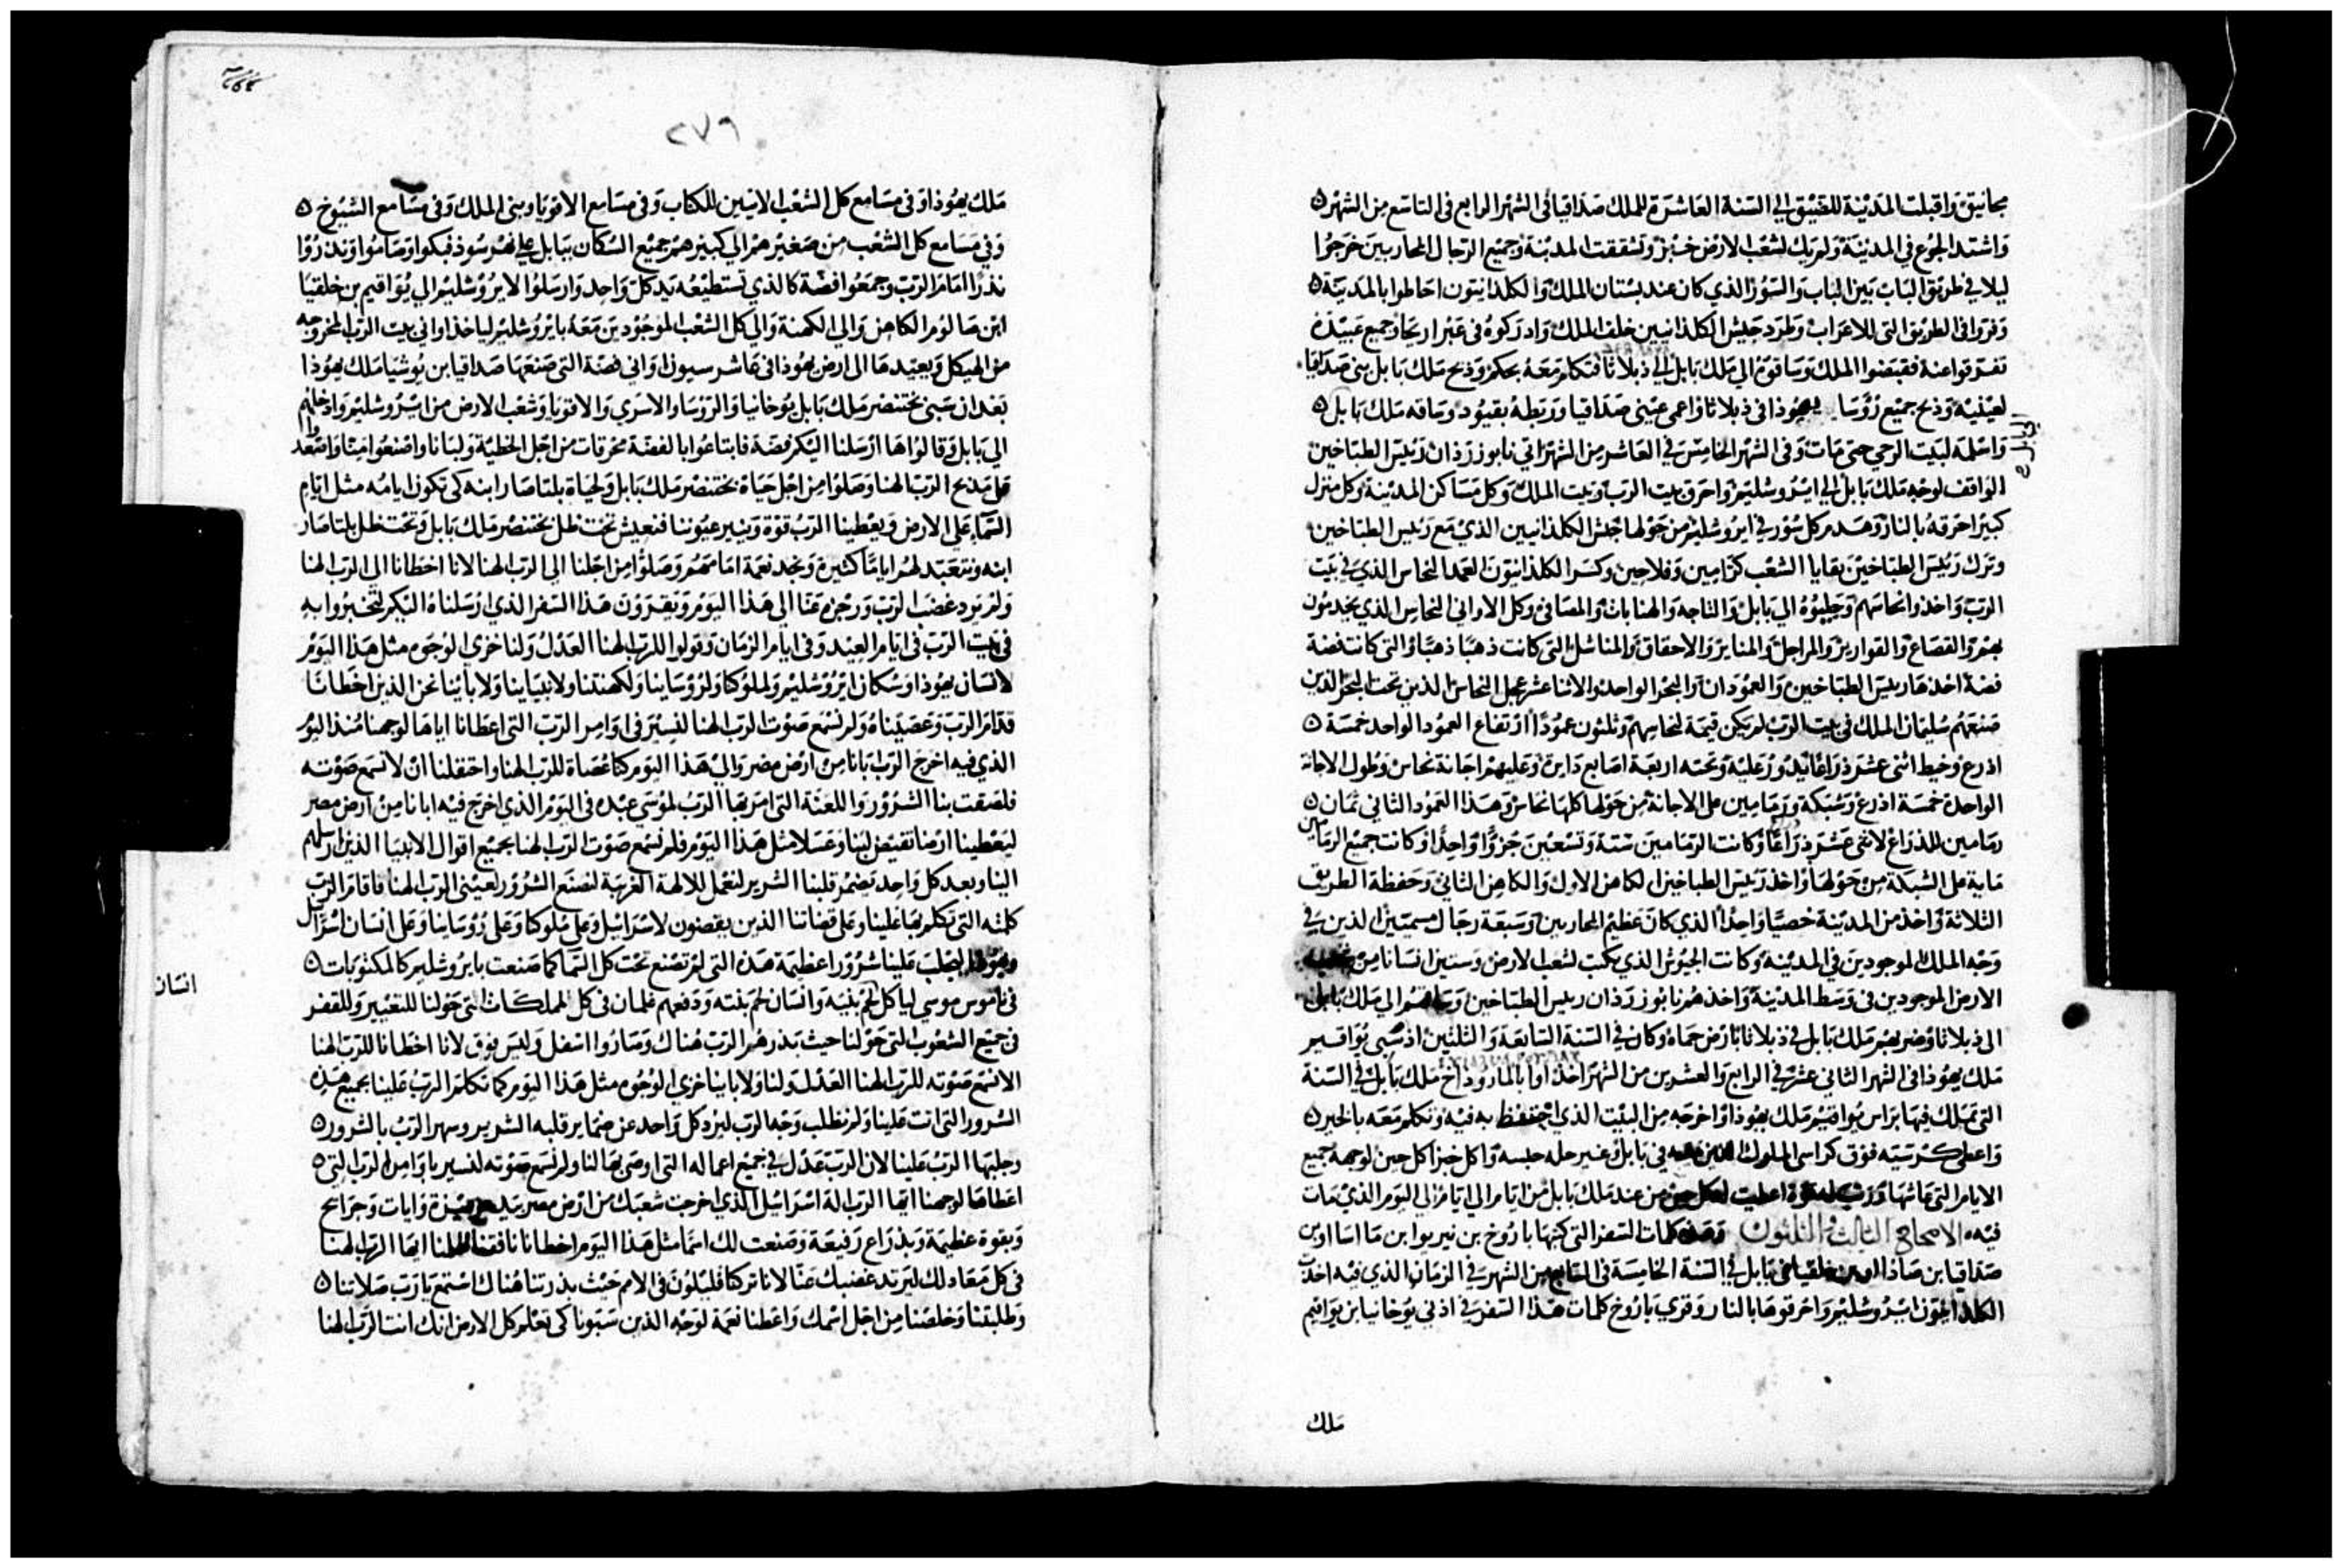 مجانيق واقبلت المدينة للضيق الي السنة العاشرة للملك صداقيا في الشهر الرابع في التاسع من الشهر
واشتد الجوع في المدينة ولم يك لشعب الارض خبز وتشققت المدينة وجميع الرجال المحاربين خرجوا
ليلا في طريق الباب بين الباب والسور الذي كان عند بستان الملك والكلدانيون احاطوا بالمدينة
وفروا في الطريق التي للاعراب وطرد جيش الكلدانيين خلف الملك وادركوه في عبر اريحا وجميع عبيده
تفرقوا عنه فقبضوا الملك وساقوه الي ملك بابل الي ذبلاثا فتكلم معه بحكم وذبح ملك بابل بني صداقيا
لعينيه وذبح جميع رؤسا يهوذا في ذبلاثا واعمي عيني صداقيا وربطه بقيود وساقه ملك بابل
الي بابل
واسلمه لبيت الرحي حتي مات وفي الشهر الخامس في العاشر من الشهر اتي نابوزردان رييس الطباخين
الواقف لوجه ملك بابل الي ايروشليم واحرق بيت الرب وبيت الملك وكل مساكن المدينة وكل منزل
كبير احرقه بالنار وهدم كل سور في ايروشليم من حولها جيش الكلدانيين الذي مع رييس الطباخين
وترك رييس الطباخين بقايا الشعب كرامين وفلاحين وكسر الكلدانيون العمد النحاس الذي في بيت
الرب واخذوا نحاسهم وجلبوه الي بابل والتاجه والهنابات والمصافي وكل الاواني النحاس الذي يخدمون
بهم والقصاع والقوارير والمراجل والمناير والاحقاق والمناشل التي كانت ذهبا ذهبا والتي كانت فضة
فضة اخذها رييس الطباخين والعمودان والبحر الواحد والاثنا عشر عجل النحاس الذين تحت البحر الذين
صنعهم سليمان الملك في بيت الرب لم يكن قيمة لنحاسهم وثلثون عمودا ارتفاع العمود الواحد خمسة
اذرع وخيط اثني عشر ذراعا يدور عليه وتحته اربعة اصابع دايرة وعليهم اجانة نحاس وطول الاجانة
الواحدة خمسة اذرع وشبكة ورمامين علي الاجانة من حولها كلها نحاس وهذا العمود الثاني ثمان
رمامين للذراع لاثني عشر ذراعا وكانت الرمامين ستة وتسعين جزوا واحدا وكانت جميع الرمامين
ماية علي الشبكة من حولها واخذ رييس الطباخين الكاهن الاول والكاهن الثاني وحفظة الطريق
الثلاثة واخذ من المدينة خصيا واحدا الذي كان عظيم المحاربين وسبعة رجال مسميين الذين في
وجه الملك الموجودين في المدينة وكاتب الجيوش الذي يكتب لشعب الارض وستين انسانا من شعب
الارض الموجودين في وسط المدينة واخذهم نابوزردان رييس الطباخين وساقهم الي ملك بابل
الي ذبلاثا وضربهم ملك بابل في ذبلاثا بارض حماه وكان في السنة السابعة والثلثين اذ سبي يواقيم
ملك يهوذا في الشهر الثاني عشر في الرابع والعشرين من الشهر اخذ اوابالماروداخ ملك بابل في السنة
التي تملك فيها براس يواقيم ملك يهوذا واخرجه من البيت الذي احتفظ به فيه وتكلم معه بالخير
واعطي كرسيه فوق كراسي الملوك الذين معه في بابل وغير حله حبسه واكل خبزا كل حين لوجهه جميع
الايام التي عاشها ورتب له اعطيت لكل حين من عند ملك بابل من ايام الي ايام الي اليوم الذي مات
فيه الاصحاح الثالث والثلثون وهذه كلمات السفر التي كتبها باروخ بن نيريوا بن ماساا ابن
صداقيا بن صاذا بن خلقيا في بابل في السنة الخامسة في السابع من الشهر في الزمان الذي فيه اخذت
الكلدانيون ايروشليم واحرقوها بالنار وقري باروخ كلمات هذا السفر في اذني يوخانيا بن يواقيم
ملك
٢٧٩
ملك يهوذا وفي مسامع كل الشعب الاتيين للكتاب وفي مسامع الاقويا وبني الملك وفي مسامع الشيوخ
وفي مسامع كل الشعب من صغيرهم الي كبيرهم جميع السكان ببابل علي نهر سود فبكوا وصاموا ونذروا
نذرا امام الرب وجمعوا فضة كالذي تستطيعه يد كل واحد وارسلوا الي ايروشليم الي يواقيم بن خلقيا
ابن صالوم الكاهن والي الكهنة والي كل الشعب الموجودين معه بايروشليم لياخذ اواني بيت الرب المخروجه
من الهيكل ويعيدها الي ارض يهوذا في عاشر سيوان اواني فضة التي صنعها صداقيا بن يوشيا ملك يهوذا
بعد ان سبي بختنصر ملك بابل يوخانيا والروسا والاسري والاقويا وشعب الارض من ايروشليم وادخلهم
الي بابل وقالوا ها ارسلنا اليكم فضة فابتاعوا بالفضة محرقات من اجل الخطية ولبانا واصنعوا منا واصعدوا
علي مذبح الرب الهنا وصلوا من اجل حياة بختنصر ملك بابل ولحياة بلتاصار ابنه كي تكون ايامه مثل ايام
السما علي الارض ويعطينا الرب قوة وينير عيوننا فنعيش تحت ظل بختنصر ملك بابل وتحت ظل بلتاصار
ابنه ونتعبد لهم اياما كثيرة ونجد نعمة امامهم وصلوا من اجلنا الي الرب الهنا لانا اخطانا الي الرب الهنا
ولم يرد غضب الرب ورجزه عنا الي هذا اليوم وتقرون هذا السفر الذي ارسلناه اليكم لتخبروا به
في بيت الرب في ايام العيد وفي ايام الزمان وقولوا للرب الهنا العدل ولنا خزي الوجوه مثل هذا اليوم
لانسان يهوذا وسكان ايروشليم ولملوكنا ولروساينا ولكهنتنا ولانبياينا ولابائنا نحن الذين اخطانا
قدام الرب وعصيناه ولم نسمع صوت الرب الهنا لنسير في اوامر الرب التي اعطانا اياها لوجهنا منذ اليوم
الذي فيه اخرج الرب ابانا من ارض مصر والي هذا اليوم كنا عصاة للرب الهنا واحتفلنا ان لا نسمع صوته
فلصقت بنا الشرور واللعنة التي امر بها الرب لموسي عبده في اليوم الذي اخرج فيه ابانا من ارض مصر
ليعطينا ارضا تفيض لبنا وعسلا مثل هذا اليوم فلم نسمع صوت الرب الهنا بجميع اقوال الانبيا الذين ارسلهم
الينا وبعد كل واحد بضمر قلبنا الشرير لنعمل للالهة الغريبة لنصنع الشرور لعيني الرب الهنا فاقام الرب
كلمته التي تكلم بها علينا وعلي قضاتنا الذين يقضون لاسرائيل وعلي ملوكنا وعلي روساينا وعلي انسان اسرائيل
ويهوذا ليجلب علينا شرورا عظيمة هذه التي لم تصنع تحت كل السما كما صنعت بايروشليم كالمكتوبات
انسان
في ناموس موسي لياكل لحم بنيه وانسان لحم بنته ودفعهم غلمان في كل المملكات التي حولنا للتعيير وللقفر
في جميع الشعوب التي حولنا حيث بذرهم الرب هناك وصاروا اسفل وليس فوق لانا اخطانا للرب الهنا
الا نسمع صوته للرب الهنا العدل ولنا ولابائنا خزي الوجوه مثل هذا اليوم كما تكلم الرب علينا بجميع هذه
الشرور التي اتت علينا ولم نطلب وجه الرب ليرد كل واحد عن ضماير قلبه الشرير وسهر الرب بالشرور
وجلبها الرب علينا لان الرب عدل في جميع اعماله التي اوصي بها لنا ولم نسمع صوته لنسير باوامر الرب التي
اعطاها لوجهنا ايها الرب اله اسرائيل الذي اخرجت شعبك من ارض مصر بيد عزيزة وايات وجرايح
وبقوة عظيمة وبذراع رفيعة وصنعت لك اسما مثل هذا اليوم اخطانا نافقنا ظلمنا ايها الرب الهنا
في كل معاد لك ليرتد غضبك عنا لانا تركنا قليلون في الامم حيث بذرتنا هناك استمع يا رب صلاتنا
وطلبتنا وخلصنا من اجل اسمك واعطنا نعمة لوجه الذين سبونا كي يعلم كل الارض انك انت الرب الهنا